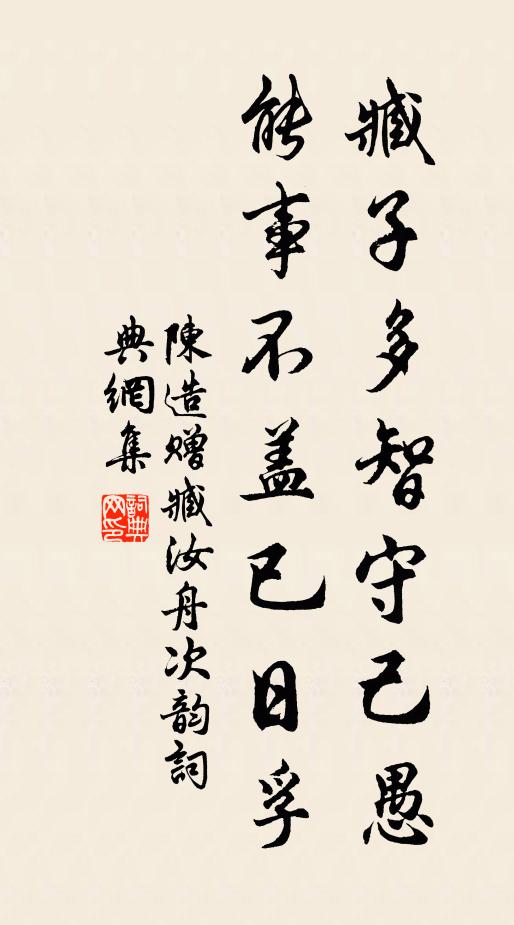 臧子多智守己愚
能事不盖已日孚
陳造赠臧汝舟次韵詞
典網集
詞典網印